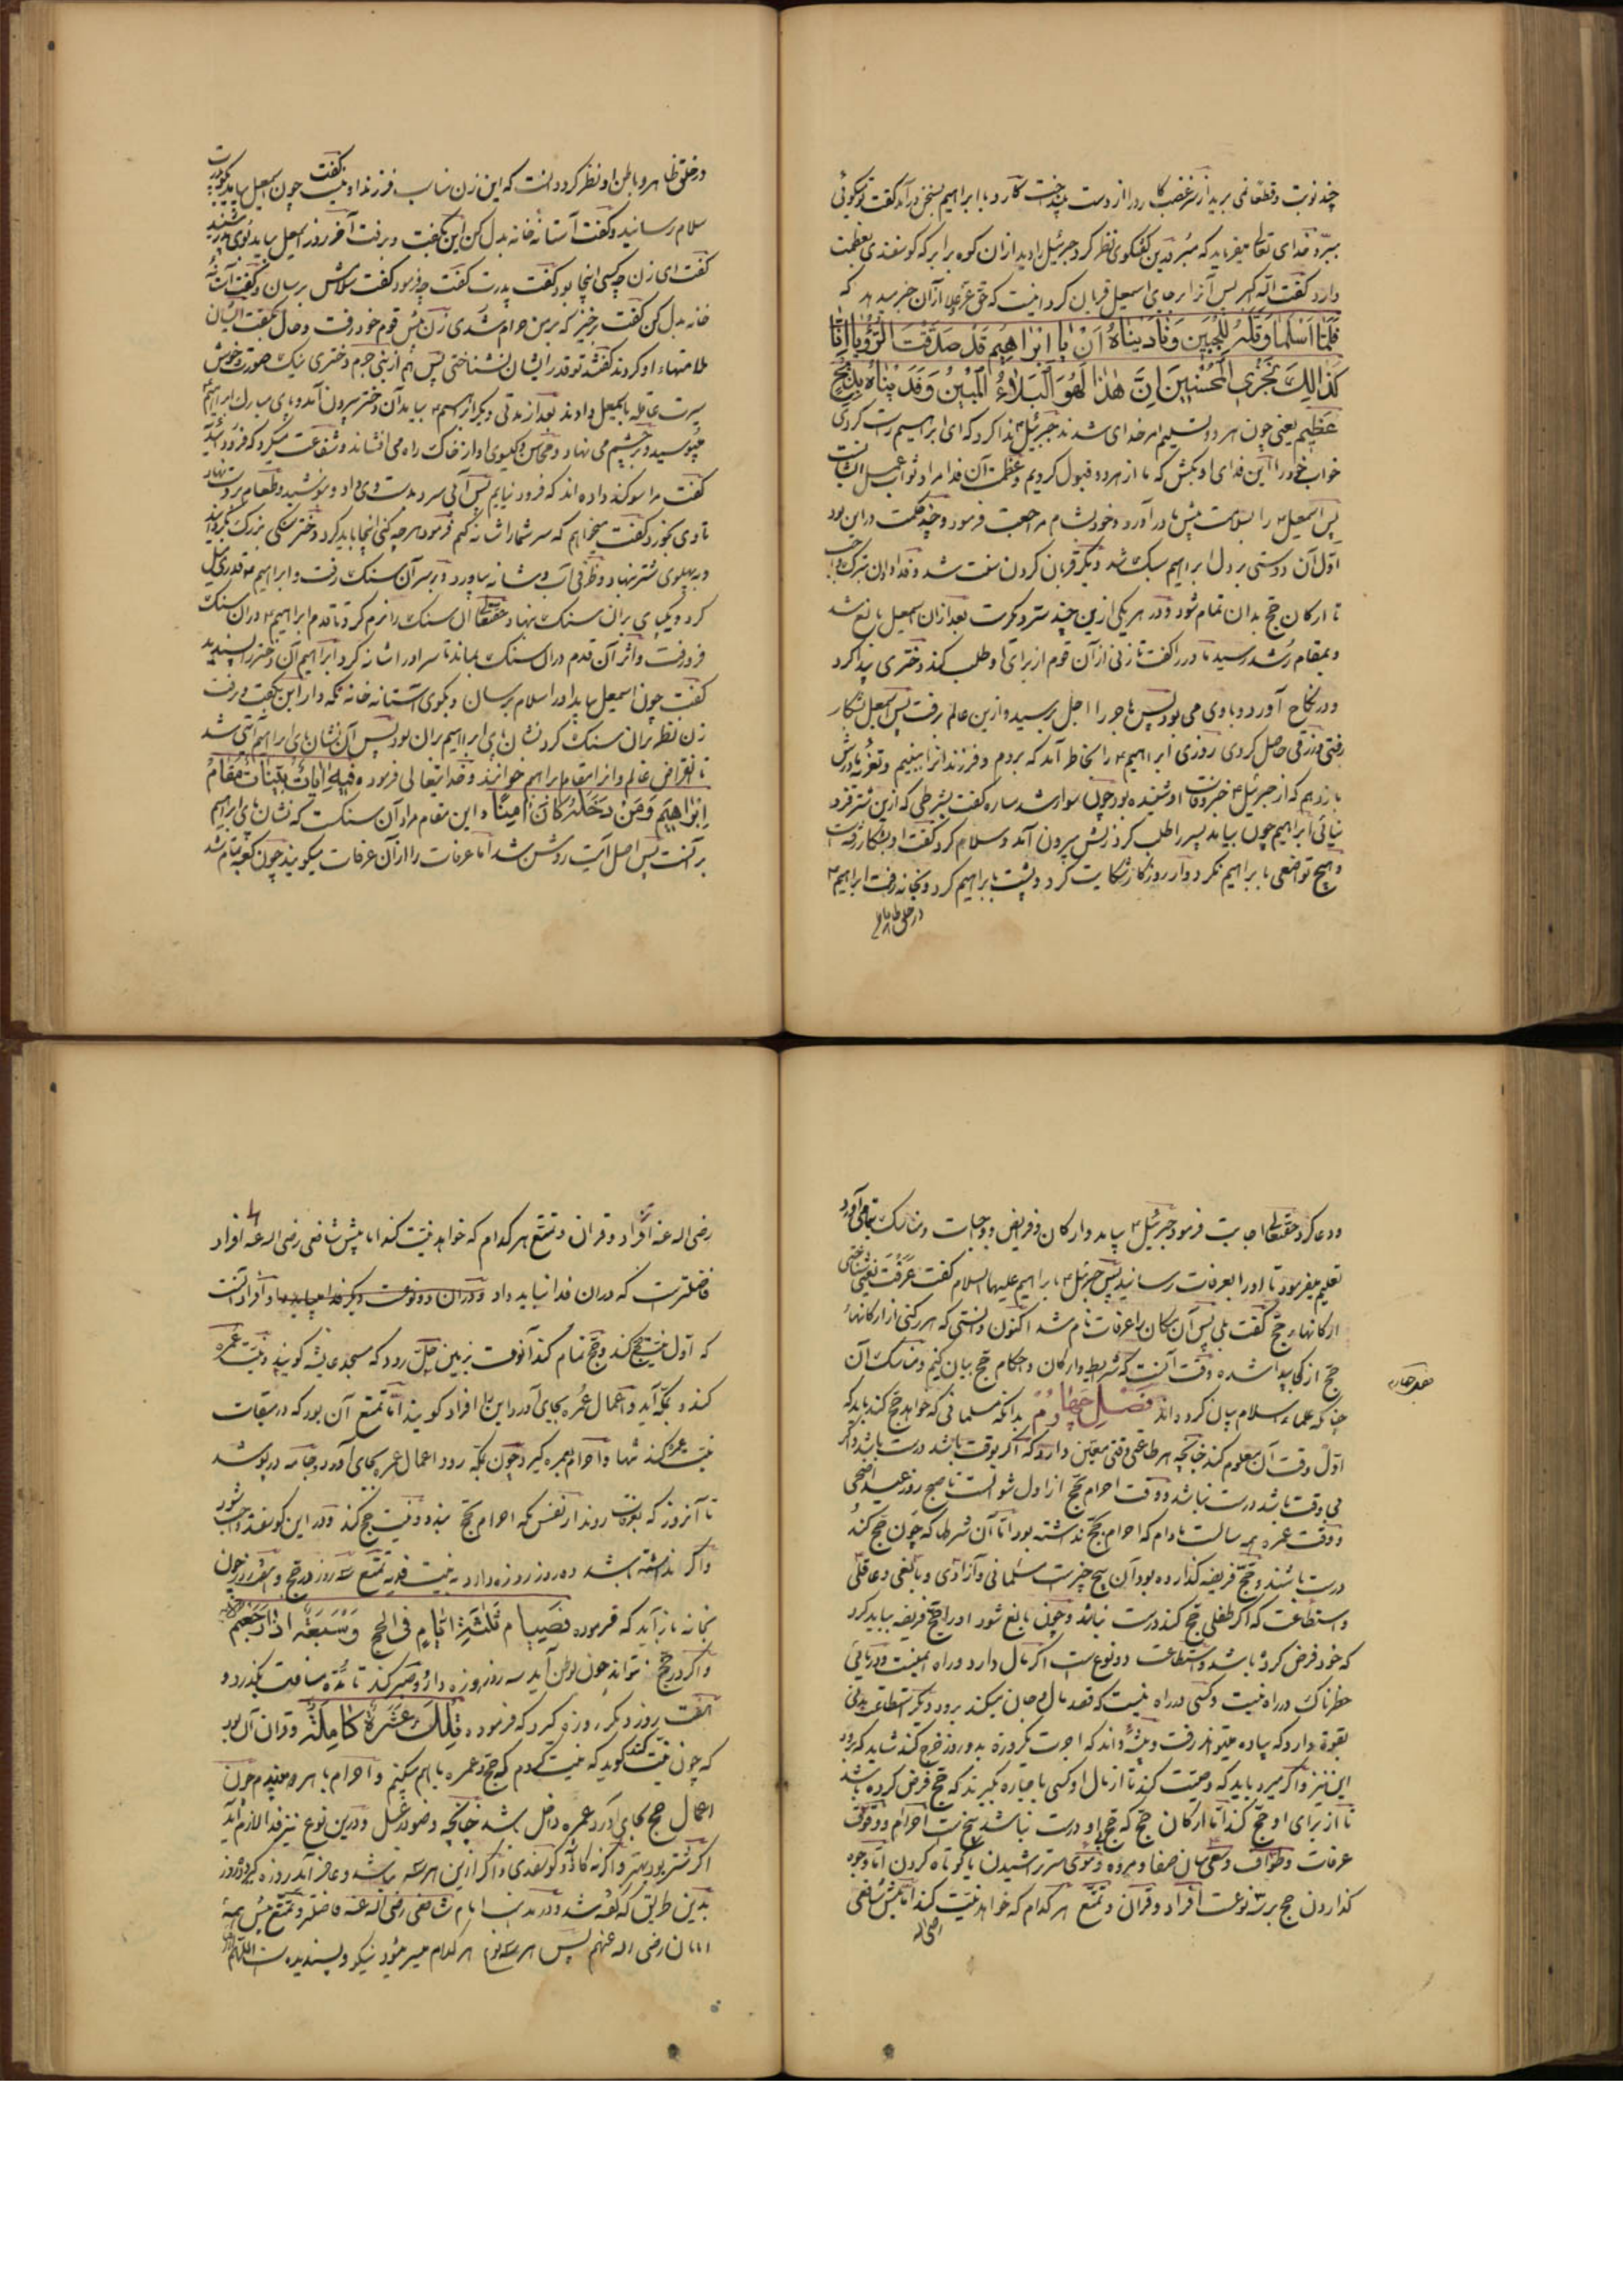 چند نوبت و قطعا نمی برید از سر غضب کارد را از دست بینداخت کارد با ابراهیم بسخن درآمد گفت تو میگوئی
ببر و خدای تعالی میفرماید که مبر درین گفتگوی نظر کرد جبرئیل را دید از ان کوه برابر که گوسفندی بعظمت
دارد گفت الله اکبر پس آنرا بر جای اسمعیل قربان کرد که حق عز و علا از آن خبر میدهد که
فَلَمَّا اَسْلَمَا وَتَلَّهُ لِلْجَبِينِ وَنَادَيْنَاهُ اَنْ يَا اِبْرَاهِيمُ قَدْ صَدَّقْتَ الرُّؤْيَا اِنَّا
كَذَالِكَ نَجْزِي الْمُحْسِنِينَ اِنَّ هٰذَا لَهُوَ الْبَلَاءُ الْمُبِينُ وَفَدَيْنَاهُ بِذِبْحٍ
عَظِيمٍ یعنی چون هر دو تسلیم امر خدای شدند جبرئیل ندا کرد که ای ابراهیم راست کردی
خواب خود را این فدای او بکش که ما از هر دو قبول کردیم و عظمت آن فدا مراد ثواب عمل ایشانست
پس اسمعیل را بسلامت پیش مادر آورد و خود بشام مراجعت فرمود و چند حکمت در این بود
اول آن دوستی بر دل ابراهیم سبک شد دیگر قربان کردن سنت شد و فدا دادن
تا ارکان حج بدان تمام شود و در هر یکی ازین چند سر و حکمت بعد از ان اسمعیل بالغ شد
و بمقام رشد رسید مادر را گفت تا زنی از آن قوم از برای او طلب کند دختری پیدا کرد
و در نکاح آورد و با وی می بود پس هاجر را اجل برسید و ازین عالم برفت پس اسمعیل بشکار
رفتی و رزقی حاصل کردی روزی ابراهیم را بخاطر آمد که بروم و فرزندانرا ببینم و تعزیه مادرش
بازدهم که از جبرئیل خبر وفات او شنیده بود چون سوار شد ساره گفت بشرطی که ازین شتر فرود
نیائی ابراهیم چون بیامد پسر را طلب کرد زنش بیرون آمد و سلام کرد گفت او بشکار رفته است
و هیچ تواضعی با ابراهیم نکرد و از روزگار شکایت کرد و پشت با ابراهیم کرد و بخانه رفت ابراهیم
در خلق ظاهر
در خلق ظاهر و باطن او نظر کرد دانست که این زن مناسب فرزند او نیست گفت چون اسمعیل بیاید
سلام رسانید و گفت آستانه خانه بدل کن این بگفت و برفت آخر روز اسمعیل بیامد بوی پدر شنید
گفت ای زن چه کسی اینجا بود گفت پدرت گفت چه فرمود گفت سلامش برسان و گفت آستانهٔ
خانه بدل کن گفت برخیز که بر من حرام شدی زن پیش قوم خود رفت و حال بگفت ایشان
ملامتهاء او کردند گفتند تو قدر ایشان نشناختی پس هم از بنی جرهم دختری نیک صورت و خوش
سیرت عاقله باسمعیل دادند بعد از مدتی دیگر ابراهیم بیامد آن دختر بیرون آمد و پای مبارک ابراهیم
میبوسید و بر چشم می نهاد و محاسن و گیسوی او از خاک راه می افشاند و شفاعت میکرد که فرود آئید
گفت مرا سوگند داده اند که فرود نیایم پس آبی سرد بدست وی داد و بنوشید و طعام
تا وی بخورد گفت میخواهم که سر شما را شانه کنم فرمود هر چه کنی اینجا باید کرد دختر سنگی بزرگ
و بپهلوی شتر نهاد و ظرفی آب و شانه بیاورد و بر سر آن سنگ رفت و ابراهیم قدری میل
کرد و یکپای بران سنگ نهاد حقتعالی آن سنگ را نرم کرد تا قدم ابراهیم در ان سنگ
فرو رفت و اثر آن قدم در ان سنگ بماند تا سر او را شانه کرد ابراهیم آن دختر را پسندید
گفت چون اسمعیل بیاید او را سلام برسان و بگوی آستانه خانه نگه دار این بگفت و برفت
زن نظر بران سنگ کرد نشان پای ابراهیم بران بود پس آن نشان پای ابراهیم آیتی شد
تا انقراض عالم و انرا مقام ابراهیم خوانند و خدایتعالی فرمود فِيهِ اٰيَاتٌ بَيِّنَاتٌ مَقَامُ
اِبْرَاهِيمَ وَمَنْ دَخَلَهُ كَانَ اٰمِنًا و این مقام مراد آن سنگست که نشان پای ابراهیم
بر آنست پس اصل آیت روشن شد اما عرفات را از آن عرفات میگویند چون کعبه تمام شد
و دعا کرد حقتعالی اجابت فرمود جبرئیل بیامد و ارکان و فرایض و واجبات و مناسک بجای آورد
تعلیم میفرمود تا او را بعرفات رسانید پس جبرئیل با ابراهیم علیهما السلام گفت عَرَفْتَ یعنی شناختی
ارکانهاء حج گفت بلی پس آن مکان را عرفات نام شد اکنون دانستی که هر رکنی از ارکانهاء
حج از کجا پیدا شده وقت آنست که شرایط و ارکان و احکام حج بیان کنیم و مناسک آن
چنانکه علماء اسلام بیان کرده اند فصل چهارم بدانکه مسلمانی که خواهد حج کند باید که
اول وقت آن معلوم کند چنانچه هر طاعتی وقتی معین دارد که اگر بوقت باشد درست باشد و اگر
بی وقت باشد درست نباشد و وقت احرام حج از اول شوالست تا صبح روز عید اضحی
و وقت عمره همه سالست مادام که احرام حج نداشته بود اما آن شرطها که چون حج کند
درست باشد و حج فریضه گذارده بود آن پنج چیز است مسلمانی و آزادی و بالغی و عاقلی
و استطاعت که اگر طفلی حج کند درست نباشد و چون بالغ شود او را حج فریضه بباید کرد
که خود فرض کرده باشد و استطاعت دو نوع است اگر مال دارد و راه ایمنست و دریائی
خطرناک در راه نیست و کسی در راه نیست که قصد مال و جان میکند برود و دیگر استطاعت بدنی
بقوة دارد که پیاده میتواند رفت و پیشهٔ داند که اجرت یکروزه بدو روز خرج کند شاید که برود
این نیز و اگر میرد باید که وصیت کند تا از مال او کسی باجاره بگیرند که حج فرض کرده باشد
تا از برای او حج کند اما ارکان حج که حج بی او درست نباشد پنج است احرام و وقوف
عرفات و طواف و سعی میان صفا و مروه و موی سر تراشیدن یا کوتاه کردن اما وجوه
گذاردن حج بر سه نوعست افراد و قران و تمتع هر کدام که خواهد نیت کند اما پیش شافعی
رضی الله
فصل چهارم
رضی الله عنه افراد و قران و تمتع هر کدام که خواهد نیت کند اما پیش شافعی رضی الله عنه افراد
فاضلترست که در ان فدا نباید داد و در ان دو نوعست دیگر فدا میباید داد و افراد آنست
که اول نیت حج کند و حج تمام کند آنوقت بزمین حِل رود که مسجد عایشه گویند و نیت عمره
کند و بمکه آید و اعمال عمره بجای آورد این را افراد گویند اما تمتع آن بود که در میقات
نیت عمره کند تنها و احرام بعمره گیرد چون بمکه رود اعمال عمره بجای آورد و جامه در پوشد
تا آنروز که بعرفات روند از نفس مکه احرام حج بندد و نیت حج کند و در این گوسفند واجب شود
و اگر نداشته باشد ده روز روزه دارد به نیت فدیه تمتع سه روز در حج و هفت روز چون
بخانه بازآید که فرمود فَصِيَامُ ثَلٰثَةِ اَيَّامٍ فِي الْحَجِّ وَسَبْعَةٍ اِذَا رَجَعْتُمْ
و اگر در حج نتواند چون بوطن آید سه روز روزه دارد و صبر کند تا مدّة مسافت بگذرد و
هفت روز دیگر روزه گیرد که فرمود تِلْكَ عَشَرَةٌ كَامِلَةٌ و قران آن بود
که چون نیت کند گوید که نیت کردم که حج و عمره با هم میکنم و احرام با هر دو میبندم چون
اعمال حج بجای آورد عمره داخل باشد چنانچه وضو در غسل و درین نوع نیز فدا لازم آید
اگر شتر بود بهتر و اگر نه گاوی و گوسفندی و اگر ازین هر سه نباشد و عاجز آید روزه گیرد ده روز
بدین طریق که گفته شد و در مذهب امام شافعی رضی الله عنه فاضلتر و تمتع پیش همهٔ
امامان رضی الله عنهم پس هر سه نوع هر کدام میسر شود نیکو و پسندیده است اللهم